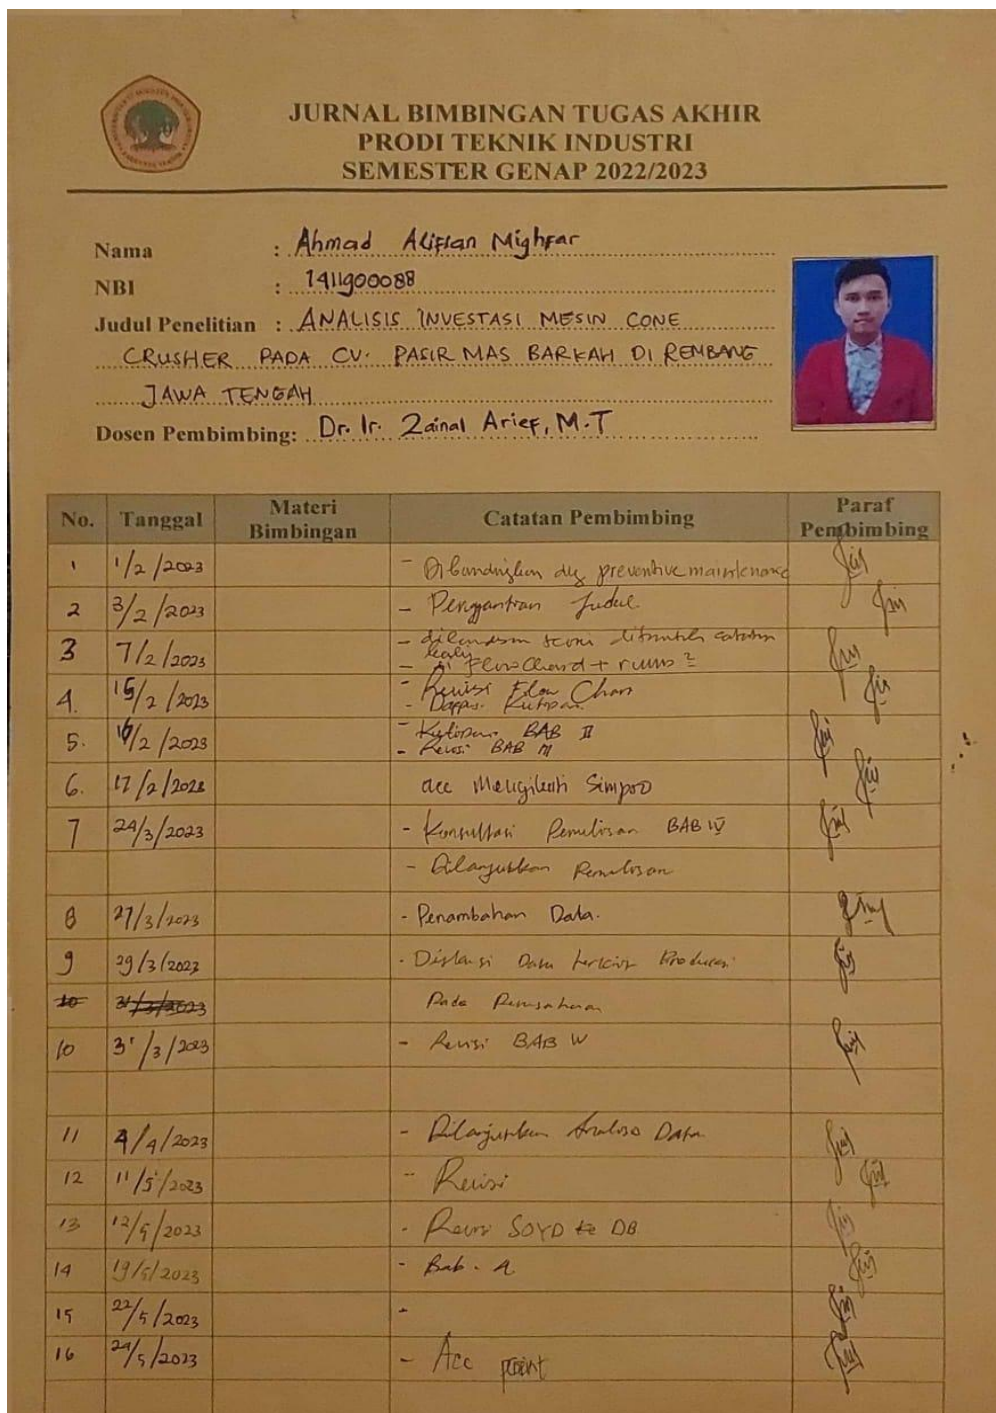 JURNAL BIMBINGAN TUGAS AKHIR
PRODI TEKNIK INDUSTRI
SEMESTER GENAP 2022/2023
Nama : Ahmad Alifian Mighfar
NBI : 1411900088
Judul Penelitian : ANALISIS INVESTASI MESIN CONE
CRUSHER PADA CV. PASIR MAS BARKAH DI REMBANG
JAWA TENGAH
Dosen Pembimbing: Dr. Ir. Zainal Arief, M.T
No. Tanggal Materi Bimbingan Catatan Pembimbing Paraf Pembimbing
1 1/2/2023 - Dibandingkan dg preventive maintenance
2 3/2/2023 - Penggantian Judul
3 7/2/2023
- Flow Chard +
4. 15/2/2023 - Revisi Flow Chart
- Kutipan
5. 16/2/2023 - Kutipan BAB II
- Revisi BAB III
6. 17/2/2023 acc Mengikuti Simpro
7 24/3/2023 - Konsultasi Penulisan BAB IV
- Dilanjutkan Penulisan
8 27/3/2023 - Penambahan Data.
9 29/3/2023 - Diskusi Data terkait Produksi
10 31/3/2023 Pada Perusahaan
10 31/3/2023 - Revisi BAB IV
11 4/4/2023 - Dilanjutkan Analisa Data
12 11/5/2023 - Revisi
13 12/5/2023 - Revisi SOYD ke DB
14 19/5/2023 - Bab. 4
15 22/5/2023 -
16 24/5/2023 - Acc print